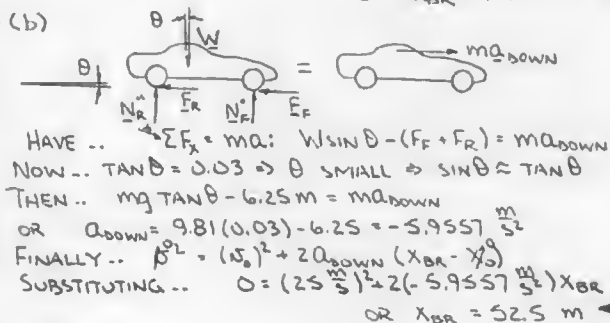 (b)
θ W
θ = ma DOWN
F_R F_F
N_R N_F
HAVE .. ΣF_x = ma: W SIN θ - (F_F + F_R) = ma_DOWN
NOW .. TAN θ = 0.03 ⇒ θ SMALL ⇒ SIN θ ≈ TAN θ
THEN .. mg TAN θ - 6.25 m = ma_DOWN
OR a_DOWN = 9.81 (0.03) - 6.25 = -5.9557 m/s²
FINALLY .. v² = (v_0)² + 2 a_DOWN (x_BR - x_0)
SUBSTITUTING .. 0 = (25 m/s)² + 2(-5.9557 m/s²) x_BR
OR x_BR = 52.5 m